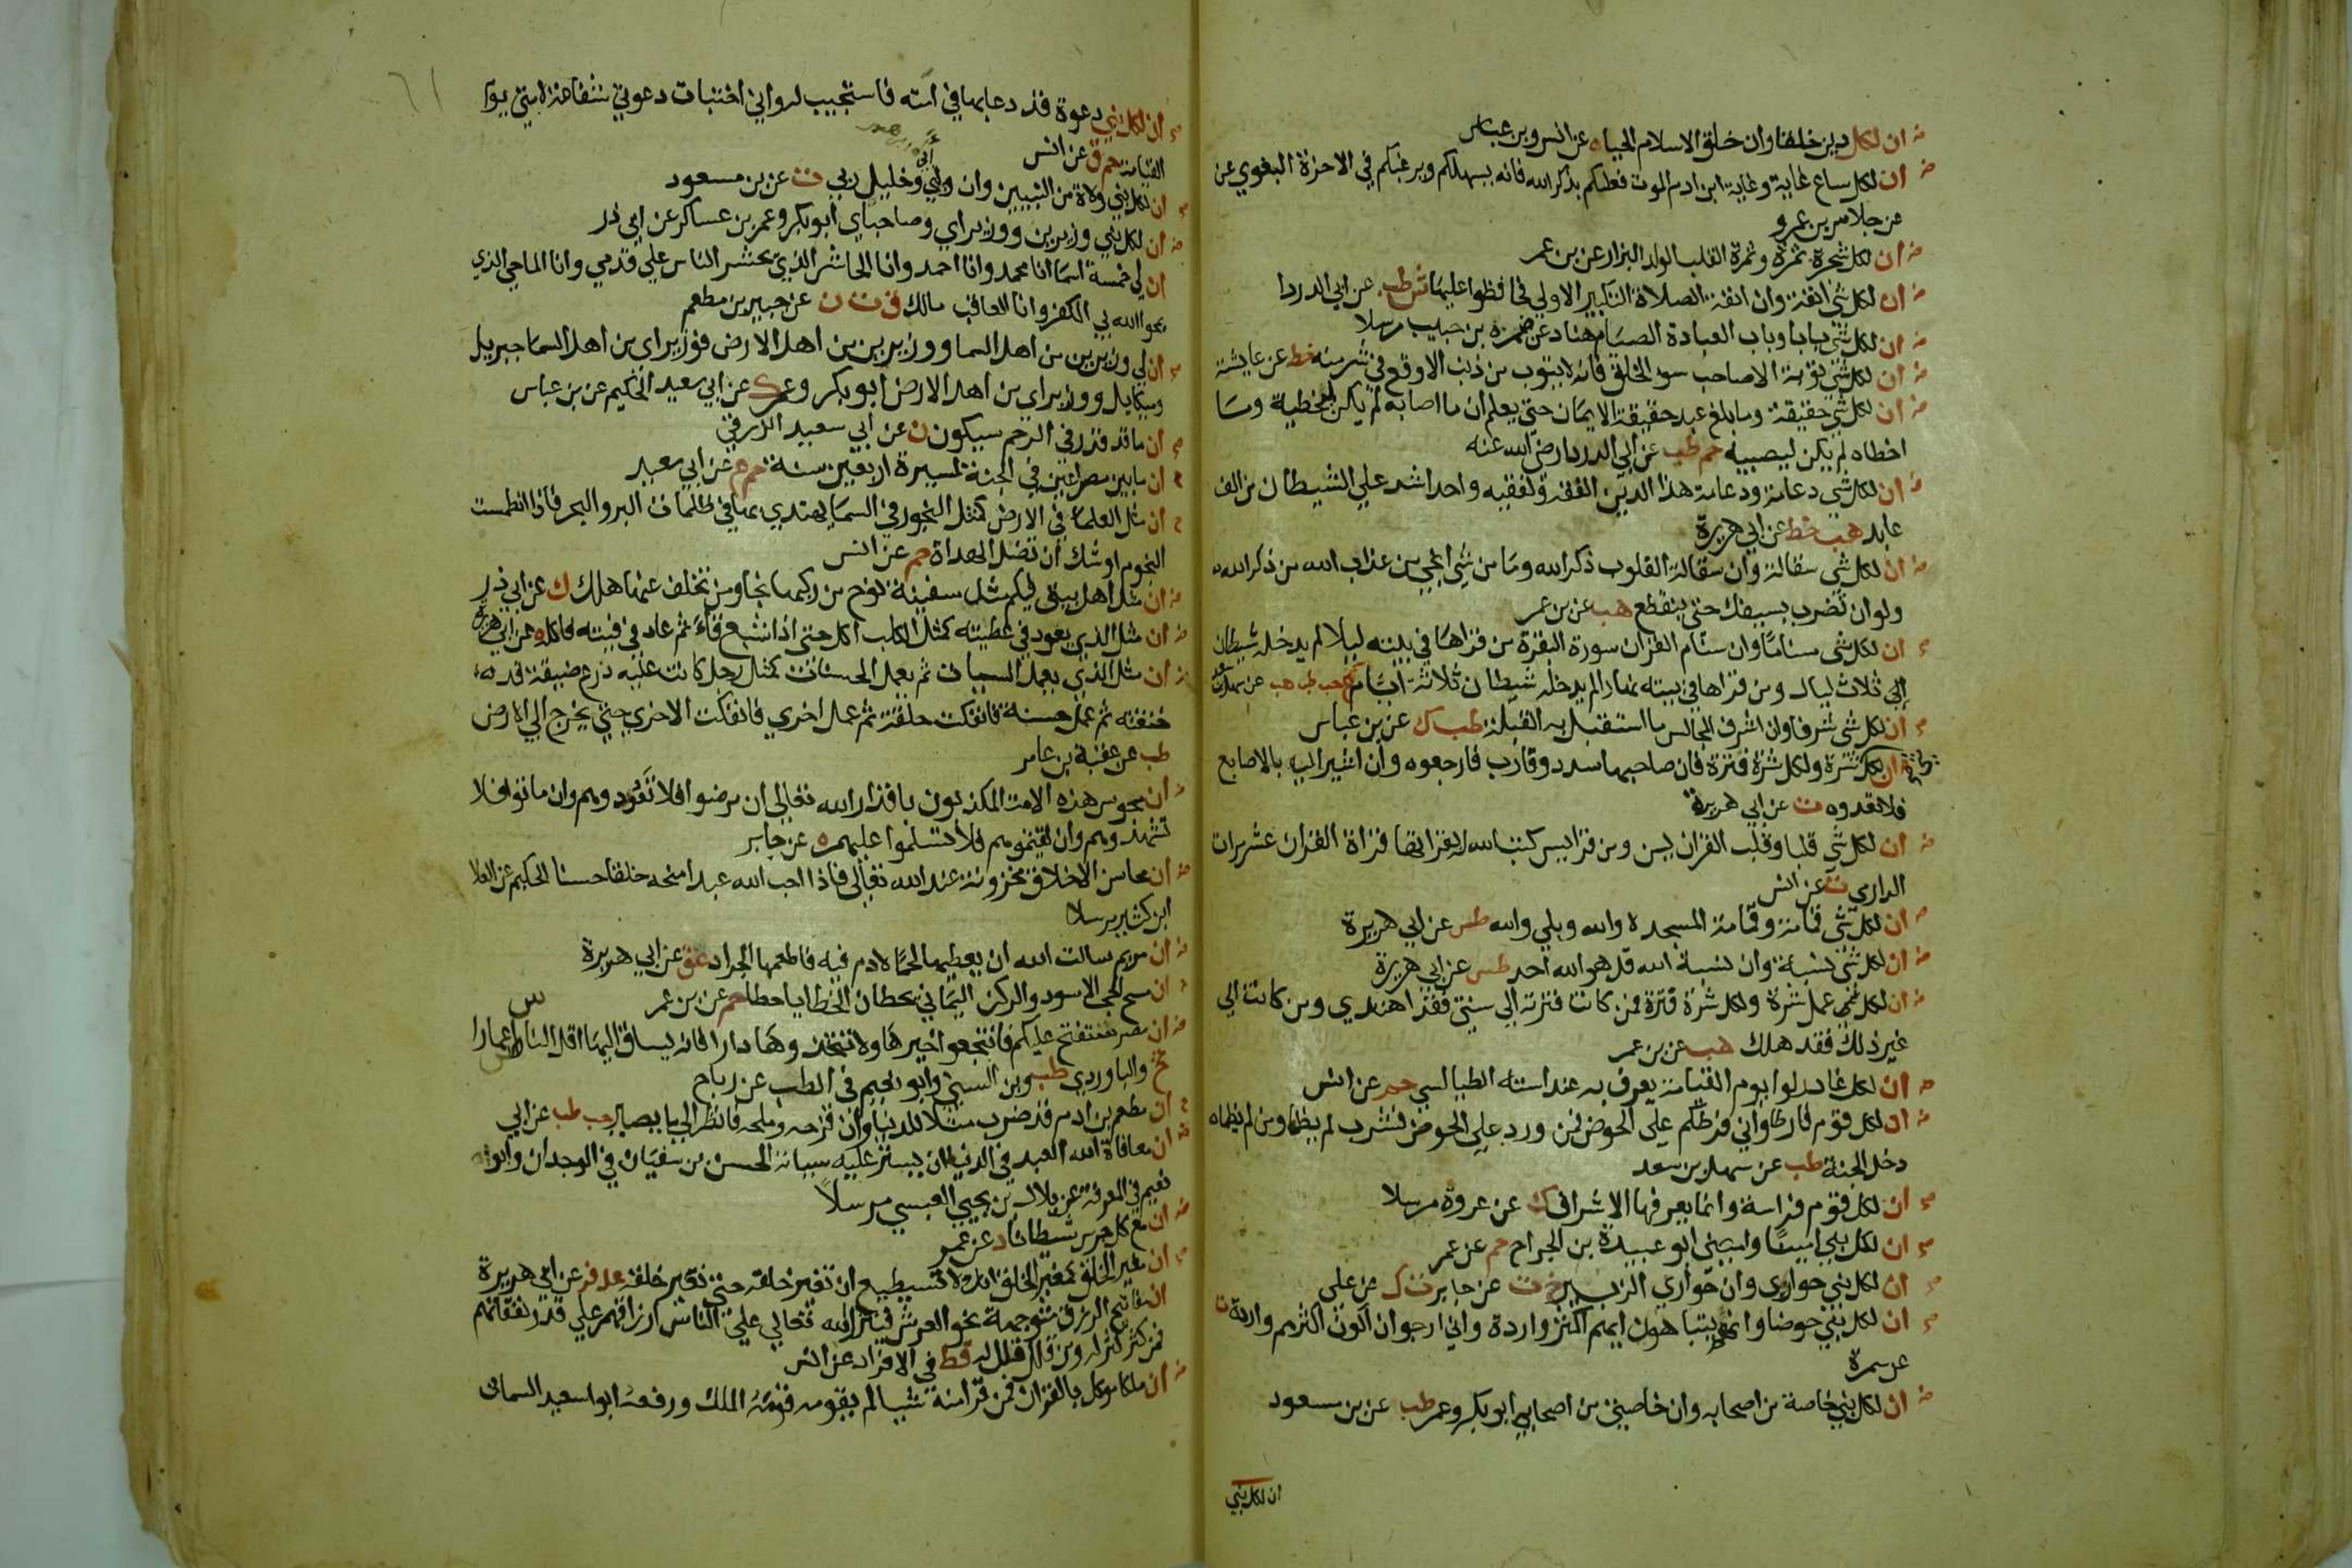 ان لكل دين خلقا وان خلق الاسلام الحياء ه عن انس وبن عباس
ان لكل ساع غاية وغاية ابن ادم الموت فعليكم بذكر الله فانه يسهلكم ويرغبكم في الاخرة البغوي عن
عن جلاس بن عمرو
ان لكل شجرة ثمرة وثمرة القلب الولد البزار عن بن عمر
ان لكل شي انفة وان انفة الصلاة التكبير الاولي فحافظوا عليها ش طب عن ابي الدردا
ان لكل شي بابا وباب العبادة الصيام هناد عن ضمرة بن حبيب مرسلا
ان لكل شي توبة الا صاحب سو الخلق فانه لا يتوب من ذنب الا وقع في شر منه خط عن عايشة
ان لكل شي حقيقة وما بلغ عبد حقيقة الايمان حتي يعلم ان ما اصابه لم يكن ليخطيه وما
اخطاه لم يكن ليصيبه حم طب عن ابي الدردا رضي الله عنه
ان لكل شي دعامة ودعامة هذا الدين الفقه ولفقيه واحد اشد علي الشيطان من الف
عابد هب خط عن ابي هريرة
ان لكل شي سقالة وان سقالة القلوب ذكر الله وما من شي انجي من عذاب الله من ذكر الله
ولو ان تضرب بسيفك حتي ينقطع هب عن بن عمر
ان لكل شي سناما وان سنام القران سورة البقرة من قراها في بيته ليلا لم يدخله شيطان
الي ثلاث ليال ومن قراها في بيته نهارا لم يدخله شيطان ثلاثة ايام ع حب طب هب عن سهل بن سعد
ان لكل شي شرفا وان اشرف المجالس ما استقبل به القبلة طب ك عن بن عباس
ان لكل شي شرة ولكل شرة فترة فان صاحبها سدد وقارب فارجعوه وان اشير اليه بالاصابع
فلا تعدوه ت عن ابي هريرة
ان لكل شي قلبا وقلب القران يس ومن قرا يس كتب الله له بقراتها قراة القران عشر مرات
الدارمي ت عن انس
ان لكل شي قمامة وقمامة المسجد لا والله وبلي والله طس عن ابي هريرة
ان لكل شي نسبة وان نسبة الله قل هو الله احد طس عن ابي هريرة
ان لكل عمل شرة ولكل شرة فترة فمن كانت فترته الي سنتي فقد اهتدي ومن كانت الي
غير ذلك فقد هلك هب عن بن عمر
ان لكل غادر لوا يوم القيامة يعرف به عند استه الطيالسي حم عن انس
ان لكل قوم فارطا واني فرطكم علي الحوض فمن ورد علي الحوض فشرب لم يظما ومن لم يظماه
دخل الجنة طب عن سهل بن سعد
ان لكل قوم فراسة وانما يعرفها الاشراف ك عن عروة مرسلا
ان لكل نبي امينا واميني ابو عبيدة بن الجراح حم عن عمر
ان لكل نبي حواري وان حواري الزبير خ ت عن جابر ت ك عن علي
ان لكل نبي حوضا وانهم يتباهون ايهم اكثر واردة واني ارجو ان اكون اكثرهم واردة ت
عن سمرة
ان لكل نبي خاصة من اصحابه وان خاصتي من اصحابي ابو بكر وعمر طب عن بن مسعود
ان لكل نبي
٦١
ان لكل نبي دعوة قد دعا بها في امته فاستجيب له واني اختبات دعوتي شفاعة لامتي يوم
القيامة حم ق عن انس
ان لكل نبي ولاة من النبيين وان وليي ابي وخليل ربي ت عن بن مسعود
ان لكل نبي وزيرين ووزيراي وصاحباي ابو بكر وعمر بن عساكر عن ابي ذر
ان لي خمسة اسما انا محمد وانا احمد وانا الحاشر الذي يحشر الناس علي قدمي وانا الماحي الذي
يمحوا الله بي الكفر وانا العاقب مالك ق ت ن عن جبير بن مطعم
ان لي وزيرين من اهل السما ووزيرين من اهل الارض فوزيراي من اهل السما جبريل
وميكايل ووزيراي من اهل الارض ابو بكر وعمر ك عن ابي سعيد الحكيم عن بن عباس
ان ما قد قدر في الرحم سيكون ن عن ابي سعيد الزرقي
ان ما بين مصراعين في الجنة لمسيرة اربعين سنة حم ع عن ابي سعيد
ان مثل العلما في الارض كمثل النجوم في السما يهتدي بها في ظلمات البر والبحر فاذا انطمست
النجوم اوشك ان تضل الهداة حم عن انس
ان مثل اهل بيتي فيكم مثل سفينة نوح من ركبها نجا ومن تخلف عنها هلك ك عن ابي ذر
ان مثل الذي يعود في عطيته كمثل الكلب اكل حتي اذا شبع قاء ثم عاد في قيئه فاكله ه عن ابي هريرة
ان مثل الذي يعمل السيات ثم يعمل الحسنات كمثل رجل كانت عليه درع ضيقة قد
خنقته ثم عمل حسنة فانفكت حلقة ثم عمل اخري فانفكت الاخري حتي يخرج الي الارض
طب عن عقبة بن عامر
ان مجوس هذه الامة المكذبون باقدار الله تعالي ان مرضوا فلا تعودوهم وان ماتوا فلا
تشهدوهم وان لقيتموهم فلا تسلموا عليهم ه عن جابر
ان محاسن الاخلاق مخزونة عند الله تعالي فاذا احب الله عبدا منحه خلقا حسنا الحكيم عن العلا
ابن كثير مرسلا
ان مريم سالت الله ان يطعمها لحما لا دم فيه فاطعمها الجراد عق عن ابي هريرة
ان مسح الحجر الاسود والركن اليماني يحطان الخطايا حطا حم عن بن عمر
ان مصر ستفتح عليكم فانتجعوا خيرها ولا تتخذوها دارا فانه يساق اليها اقل الناس اعمارا
تخ والباوردي طب وبن السني وابو نعيم في الطب عن رباح
ان مطعم بن ادم قد ضرب مثلا للدنيا وان قزحه وملحه فانظر الي ما يصير حب طب عن ابي
ان معافاة الله العبد في الدنيا ان يستر عليه سياته الحسن بن سفيان في الوحدان وابو
نعيم في المعرفة عن بلال بن يحيي العبسي مرسلا
ان مع كل جرس شيطانا د عن عمر
ان مغير الخلق كمغير الخلق انك لا تستطيع ان تغير خلقه حتي تغير خلقه عد فر عن ابي هريرة
ان مفاتيح الرزق متوجهة نحو العرش فينزل الله تعالي علي الناس ارزاقهم علي قدر نفقاتهم
فمن كثر كثر له ومن قلل قلل له قط في الافراد عن انس
ان ملكا موكل بالقران فمن قرا منه شيا لم يقومه قومه الملك ورفعه ابو سعيد السمان